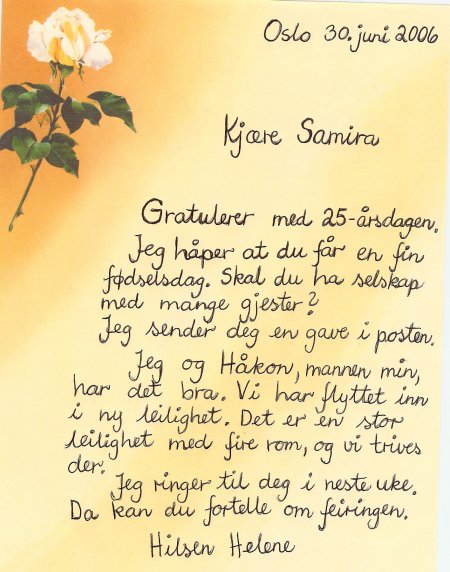 Oslo 30. juni 2006
Kjære Samira
Gratulerer med 25-årsdagen.
Jeg håper at du får en fin
fødselsdag. Skal du ha selskap
med mange gjester?
Jeg sender deg en gave i posten.
Jeg og Håkon, mannen min,
har det bra. Vi har flyttet inn
i ny leilighet. Det er en stor
leilighet med fire rom, og vi trives
der.
Jeg ringer til deg i neste uke.
Da kan du fortelle om feiringen.
Hilsen Helene